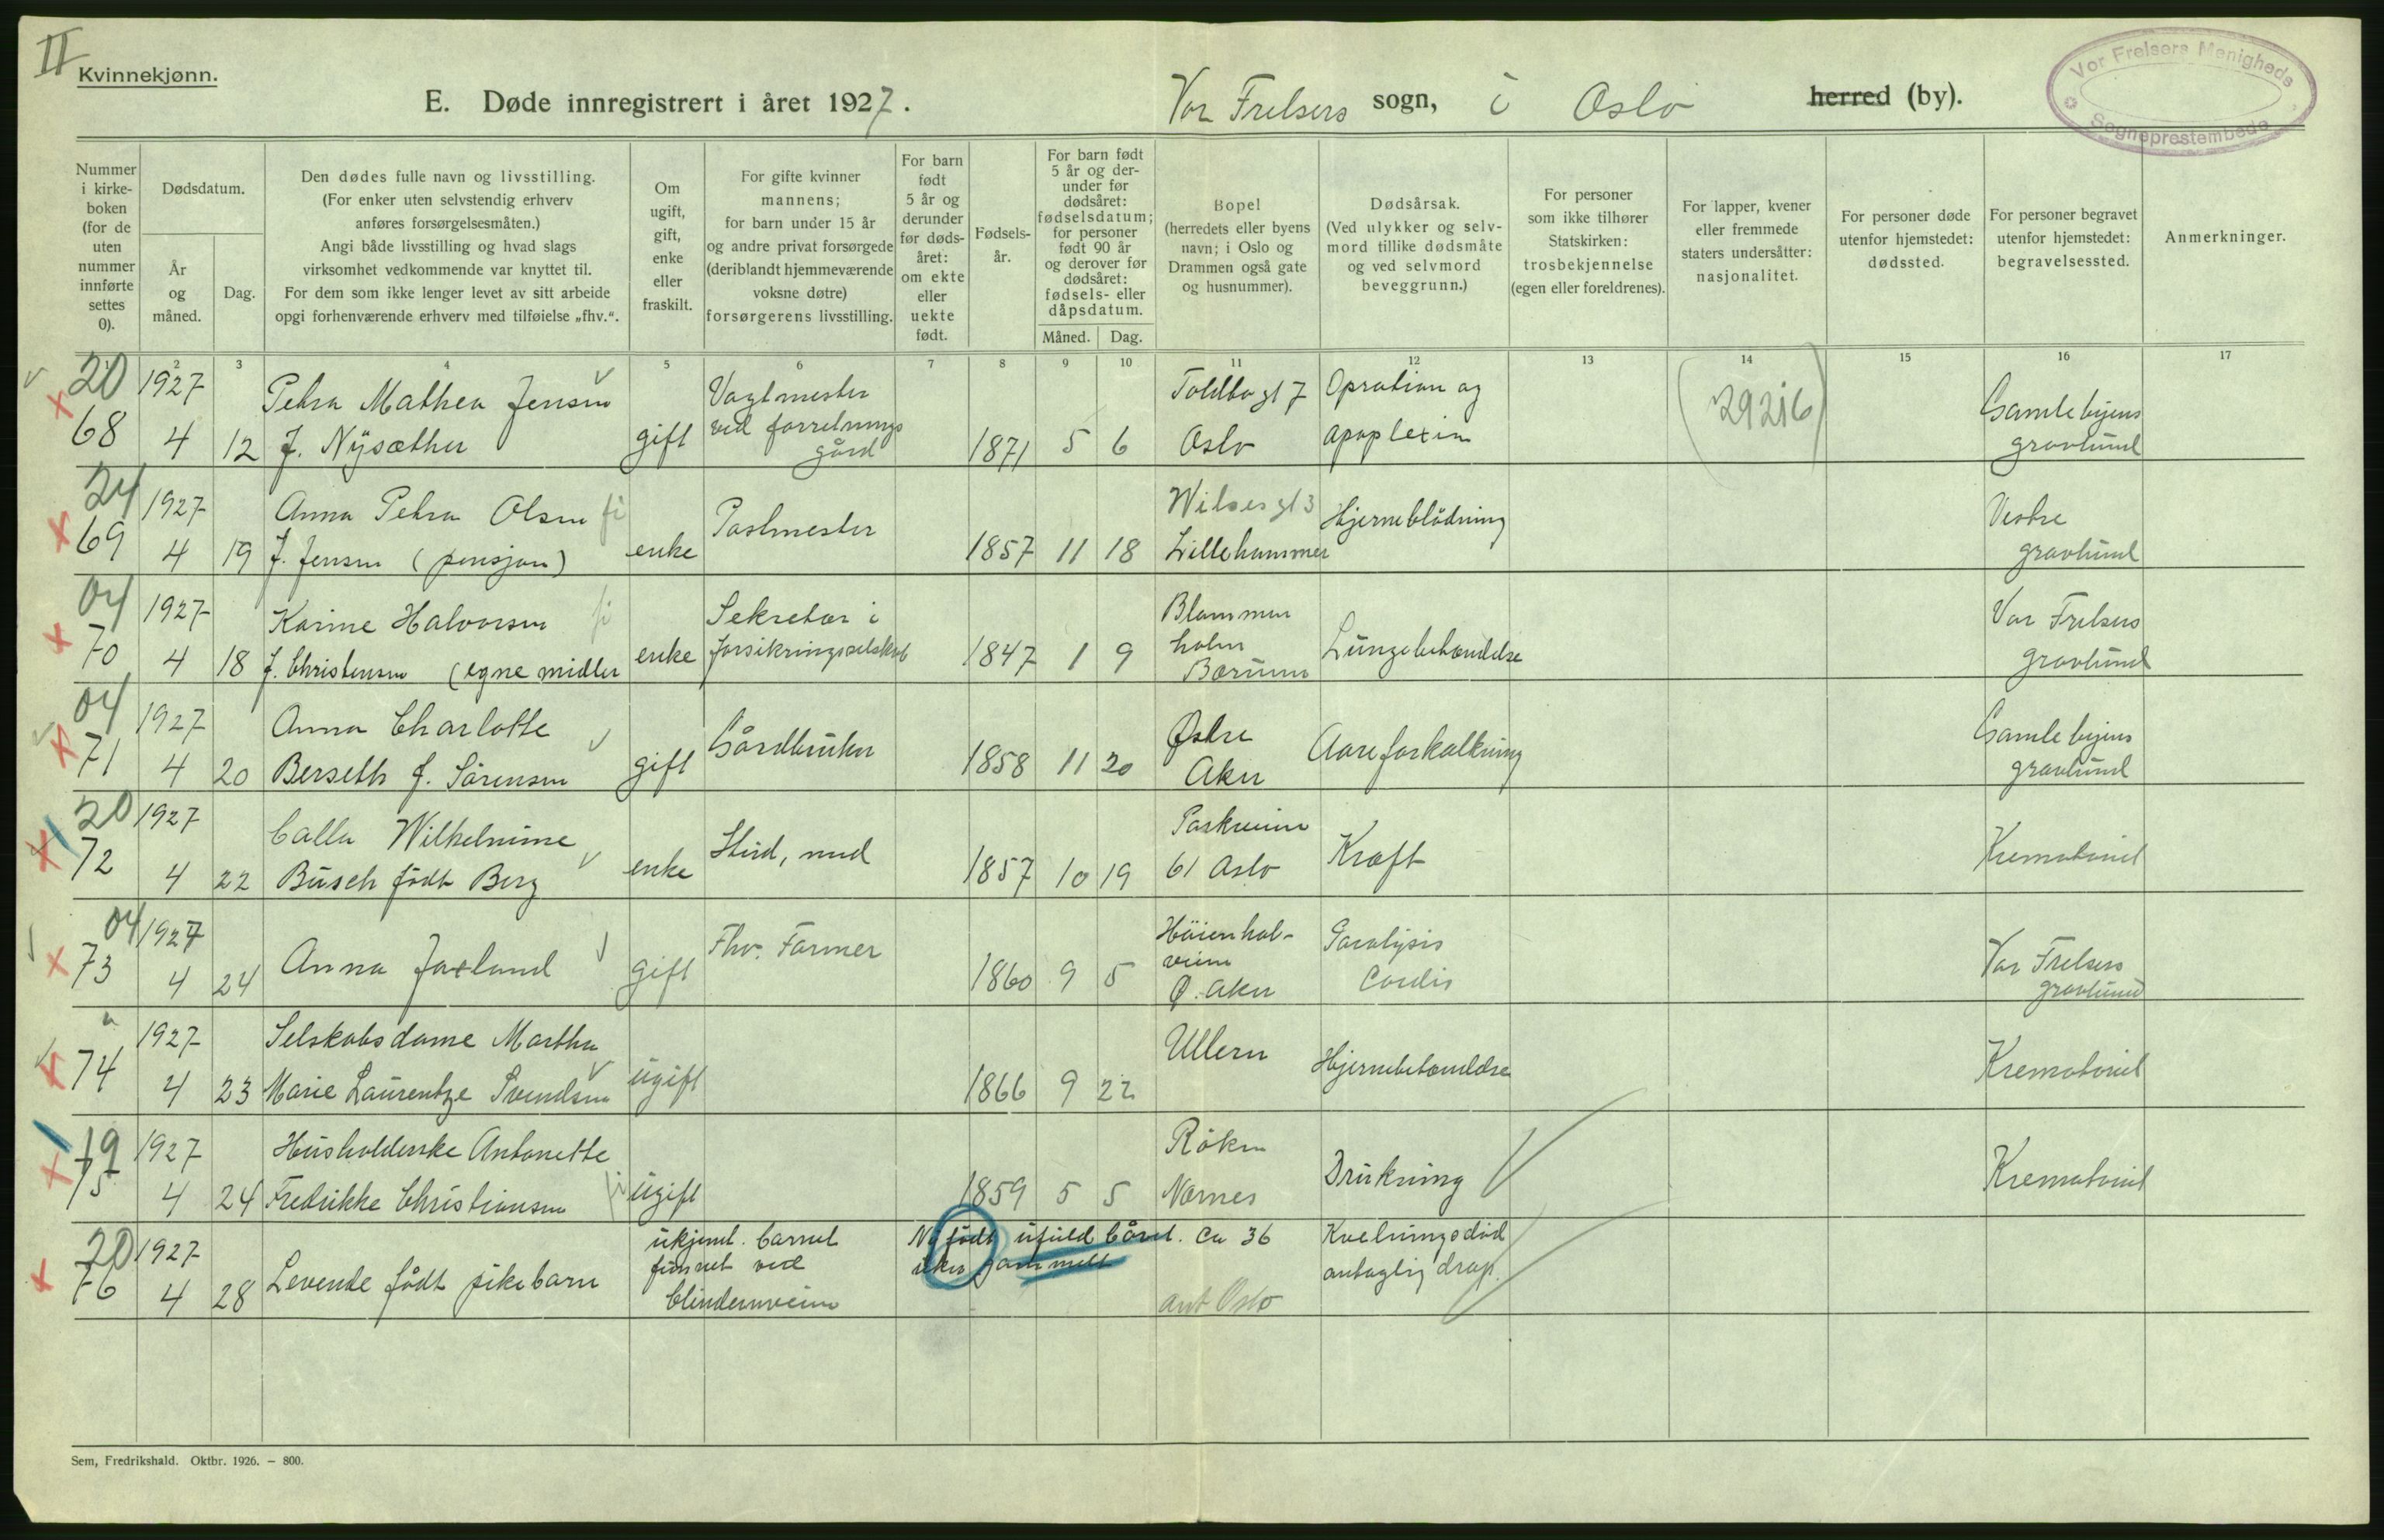 II
Kvinnekjønn.
E. Døde innregistrert i året 1927.
Vor Frelsers sogn, i Oslo herred (by).
Vor Frelsers Menigheds Sogneprestembede
Nummer i kirke- boken (for de uten nummer innførte settes 0).
Dødsdatum.
År og måned.
Dag.
Den dødes fulle navn og livsstilling.
(For enker uten selvstendig erhverv
anføres forsørgelsesmåten.)
Angi både livsstilling og hvad slags
virksomhet vedkommende var knyttet til.
For dem som ikke lenger levet av sitt arbeide
opgi forhenværende erhverv med tilføielse „fhv.“.
Om ugift, gift, enke eller fraskilt.
For gifte kvinner
mannens;
for barn under 15 år
og andre privat forsørgede
(deriblandt hjemmeværende
voksne døtre)
forsørgerens livsstilling.
For barn født 5 år og derunder før døds- året: om ekte eller uekte født.
Fødsels- år.
For barn født 5 år og der- under før dødsåret: fødselsdatum; for personer født 90 år og derover før dødsåret: fødsels- eller dåpsdatum.
Måned. Dag.
Bopel
(herredets eller byens
navn; i Oslo og
Drammen også gate
og husnummer).
Dødsårsak.
(Ved ulykker og selv-
mord tillike dødsmåte
og ved selvmord
beveggrunn.)
For personer
som ikke tilhører
Statskirken:
trosbekjennelse
(egen eller foreldrenes).
For lapper, kvener
eller fremmede
staters undersåtter:
nasjonalitet.
For personer døde
utenfor hjemstedet:
dødssted.
For personer begravet
utenfor hjemstedet:
begravelsessted.
Anmerkninger.
2 3 4 5 6 7 8 9 10 11 12 13 14 15 16 17
20 1927 Petra Mathea Jensen Vagtmester Toldbogt 7 Opration og (29216) Gamlebyens
68 4 12 f. Nysæther gift ved forretnings gård 1871 5 6 Oslo apoplexin gravlund
24 1927 Anna Petra Olsen fi Postmester Wilses gt 3 Hjerneblødning Vestre
69 4 19 f. Jensen (pensjon) enke 1857 11 18 Lillehammer gravlund
04 1927 Karine Halvorsen fi Sekretær i Blommen Vor Frelsers
70 4 18 f. Christensen (egne midler enke forsikringsselskab 1847 1 9 holm Bærum Lungebetændelse gravlund
04 1927 Anna Charlotte Gårdbruker Østre Aareforkalkning Gamlebyens
71 4 20 Berseth f. Sørensen gift 1858 11 20 Aker gravlund
20 1927 Calla Wilhelmine Stud, med Parkveien Kræft Krematoriet
72 4 22 Busch født Berg enke 1857 10 19 61 Oslo
04 1927 Anna Jaxland Fhv. Farmer Høienhal- Paralysis Vor Frelsers
73 4 24 gift 1860 9 5 veien Ø. Aker Cordis gravlund
1927 Selskabsdame Martha Ullern Hjernebetændelse Krematoriet
74 4 23 Marie Laurentze Svendsen ugift 1866 9 22
19 1927 Husholderske Antonette Røken Drukning Krematoriet
75 4 24 Fredrikke Christiansen fi ugift 1859 5 5 Nærnes
20 1927 Levende født pikebarn ukjent. barnet Nyfødt ufuldbåret. Ca 36 Kvelningsdød
76 4 28 funnet ved uker gammelt antaglig drap.
Blindernveien ant Oslo
Sem, Fredrikshald. Oktbr. 1926. – 800.